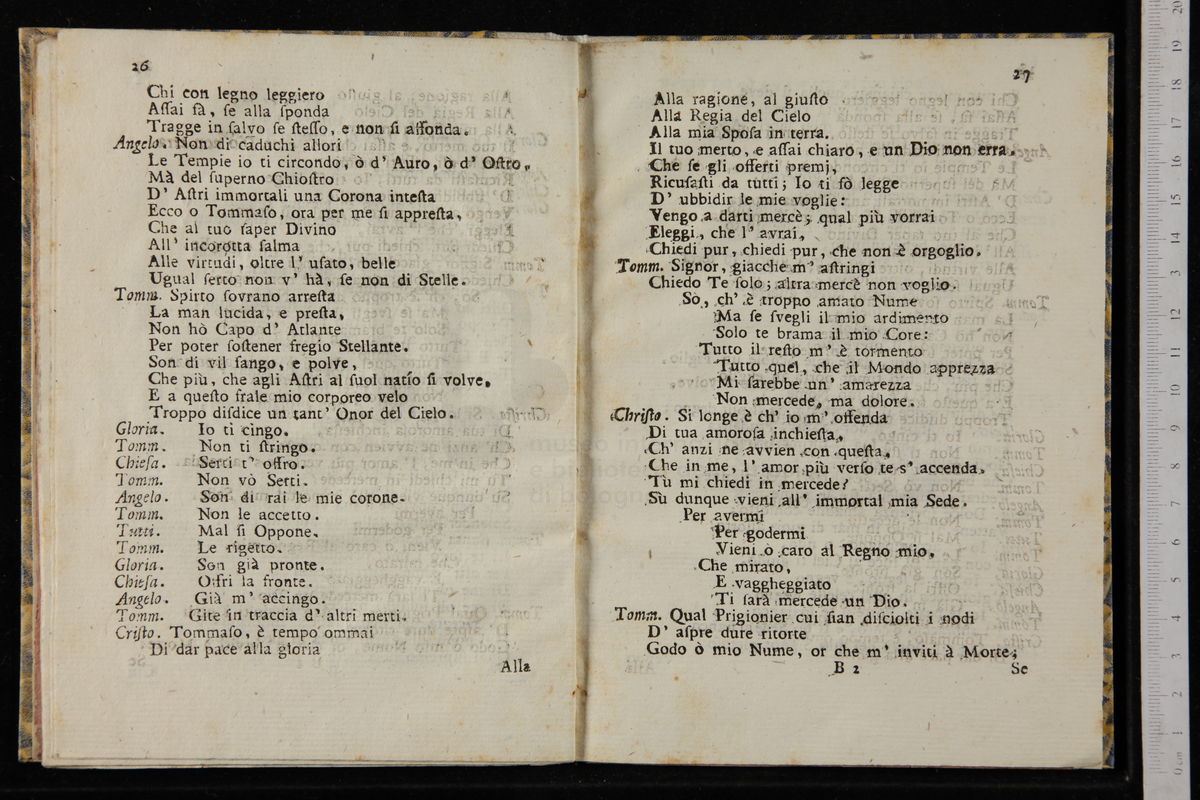 26
Chi con legno leggiero
Aſſai ſà, ſe alla ſponda
Tragge in ſalvo ſe ſteſſo, e non ſi affonda.
Angelo. Non di caduchi allori
Le Tempie io ti circondo, ò d' Auro, ò d' Oſtro,
Mà del ſuperno Chioſtro
D' Aſtri immortali una Corona inteſta
Ecco o Tommaſo, ora per me ſi appreſta,
Che al tuo ſaper Divino
All' incorotta ſalma
Alle virtudi, oltre l' uſato, belle
Ugual ſerto non v' hà, ſe non di Stelle.
Tomm. Spirto ſovrano arreſta
La man lucida, e preſta,
Non hò Capo d' Atlante
Per poter ſoſtener fregio Stellante.
Son di vil fango, e polve,
Che più, che agli Aſtri al ſuol natío ſi volve,
E a queſto frale mio corporeo velo
Troppo diſdice un tant' Onor del Cielo.
Gloria. Io ti cingo.
Tomm. Non ti ſtringo.
Chieſa. Serti t' offro.
Tomm. Non vò Serti.
Angelo. Son di rai le mie corone.
Tomm. Non le accetto.
Tutti. Mal ſi Oppone.
Tomm. Le rigetto.
Gloria. Son già pronte.
Chieſa. Offri la fronte.
Angelo. Già m' accingo.
Tomm. Gite in traccia d' altri merti.
Criſto. Tommaſo, è tempo ommai
Di dar pace alla gloria
Alla
27
Alla ragione, al giuſto
Alla Regia del Cielo
Alla mia Spoſa in terra.
Il tuo merto, e aſſai chiaro, e un Dio non erra.
Che ſe gli offerti premj,
Ricuſaſti da tutti; Io ti fò legge
D' ubbidir le mie voglie:
Vengo a darti mercè; qual più vorrai
Eleggi, che l' avrai,
Chiedi pur, chiedi pur, che non è orgoglio.
Tomm. Signor, giacche m' aſtringi
Chiedo Te ſolo; altra mercè non voglio.
Sò, ch' è troppo amato Nume
Ma ſe ſvegli il mio ardimento
Solo te brama il mio Core:
Tutto il reſto m' è tormento
Tutto quel, che il Mondo apprezza
Mi ſarebbe un' amarezza
Non mercede, ma dolore.
Chriſto. Si longe è ch' io m' offenda
Di tua amoroſa inchieſta,
Ch' anzi ne avvien con queſta,
Che in me, l' amor più verſo te s' accenda.
Tù mi chiedi in mercede?
Sù dunque vieni all' immortal mia Sede.
Per avermi
Per godermi
Vieni ò caro al Regno mio,
Che mirato,
E vaggheggiato
Ti ſarà mercede un Dio.
Tomm. Qual Prigionier cui ſian diſciolti i nodi
D' aſpre dure ritorte
Godo ò mio Nume, or che m' inviti à Morte;
B 2
Se